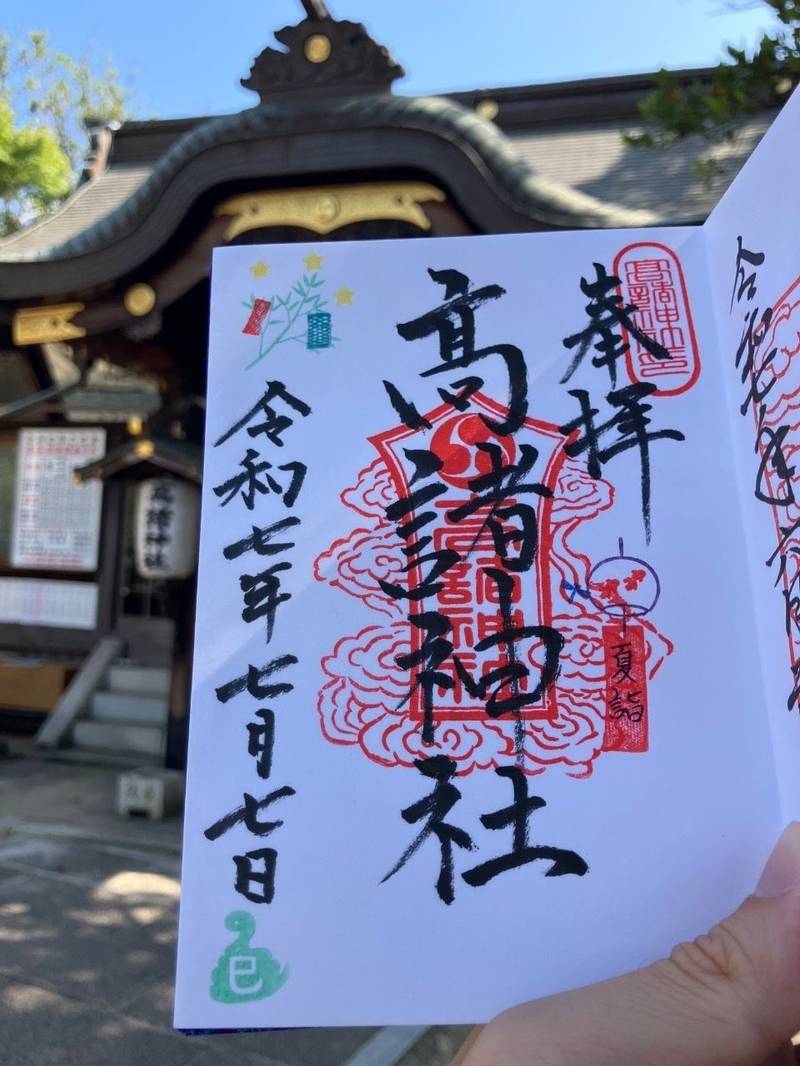 奉拝
高諸神社
高諸神社
夏詣
令和七年七月七日
巳
令和七年六月
高諸神社